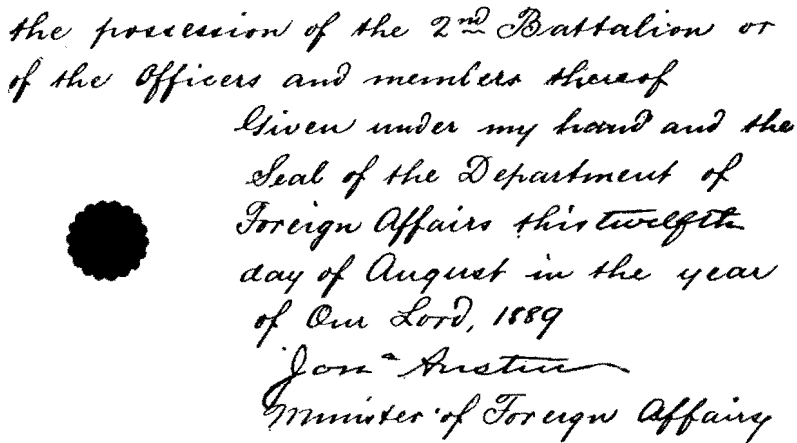 the possession of the 2nd Battalion or
of the Officers and members thereof
Given under my hand and the
Seal of the Department of
Foreign Affairs this twelfth
day of August in the year
of Our Lord, 1889
Jona Austin
Minister of Foreign Affairs